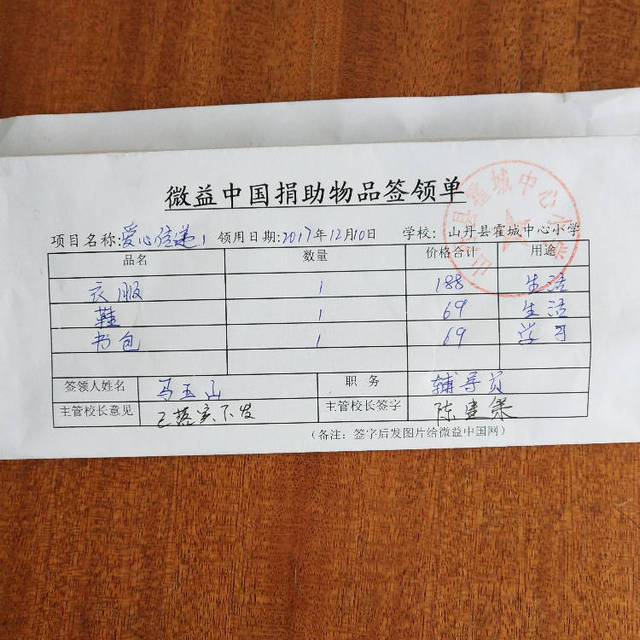 微益中国捐助物品签领单
项目名称:爱心传递1 领用日期:2017年12月10日 学校:山丹县霍城中心小学
品名 数量 价格合计 用途
衣服 1 188 生活
鞋 1 69 生活
书包 1 69 学习
签领人姓名 马玉山 职务 辅导员
主管校长意见 已落实下发 主管校长签字 陈
(备注:签字后发图片给微益中国网)
山丹县霍城中心小学